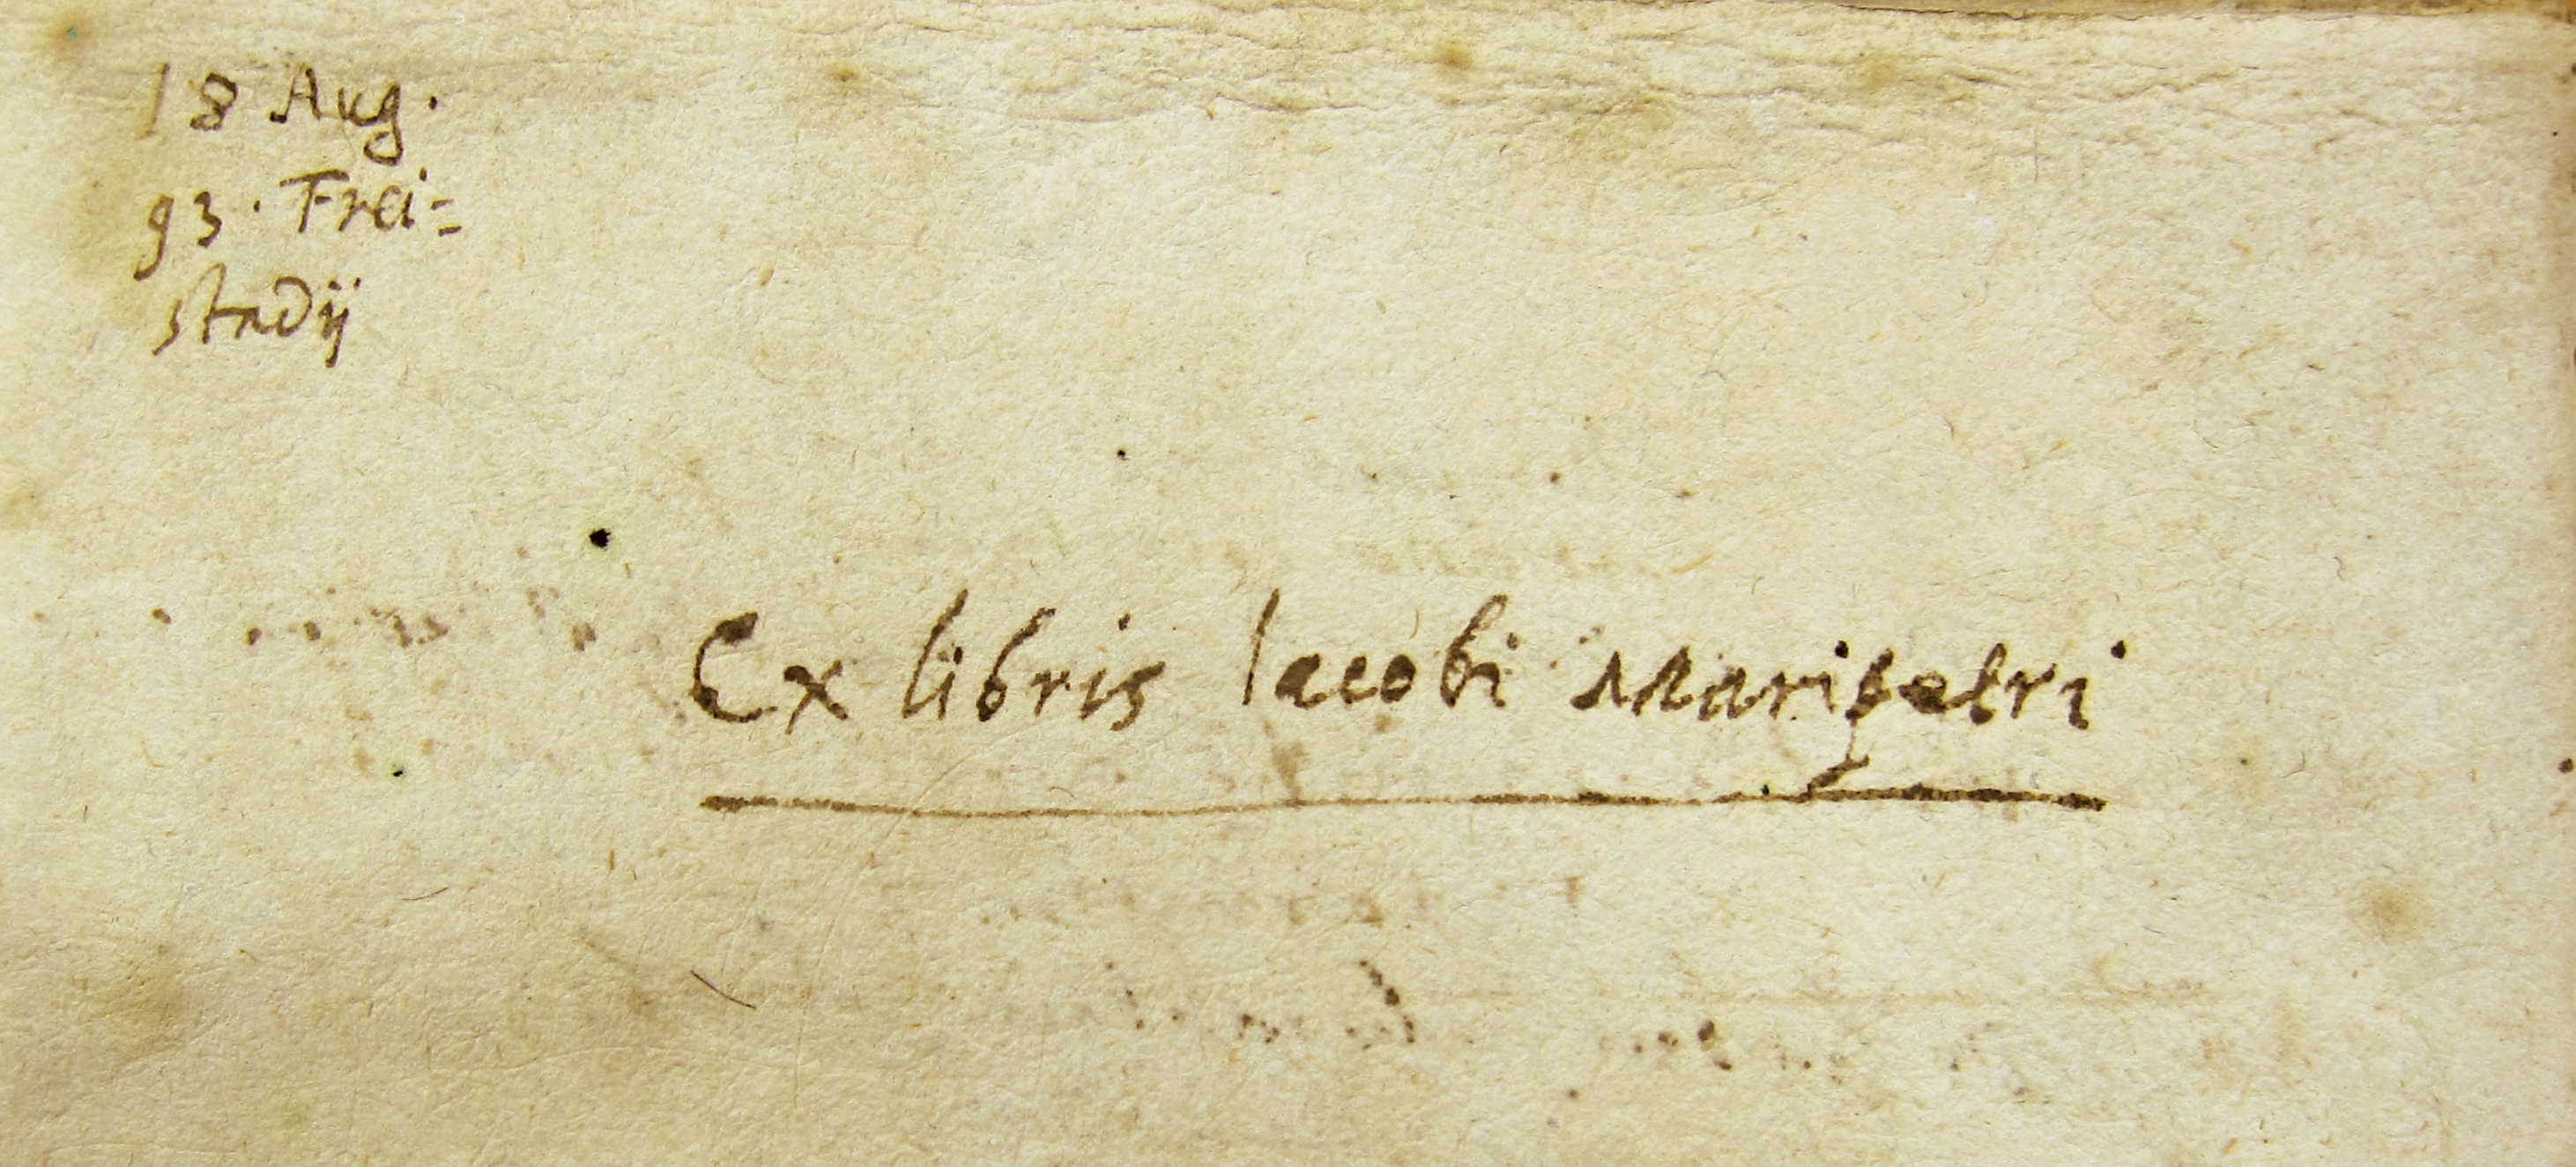 18 Aug.
93. Frei=
stadij
Ex libris Iacobi Maripetri